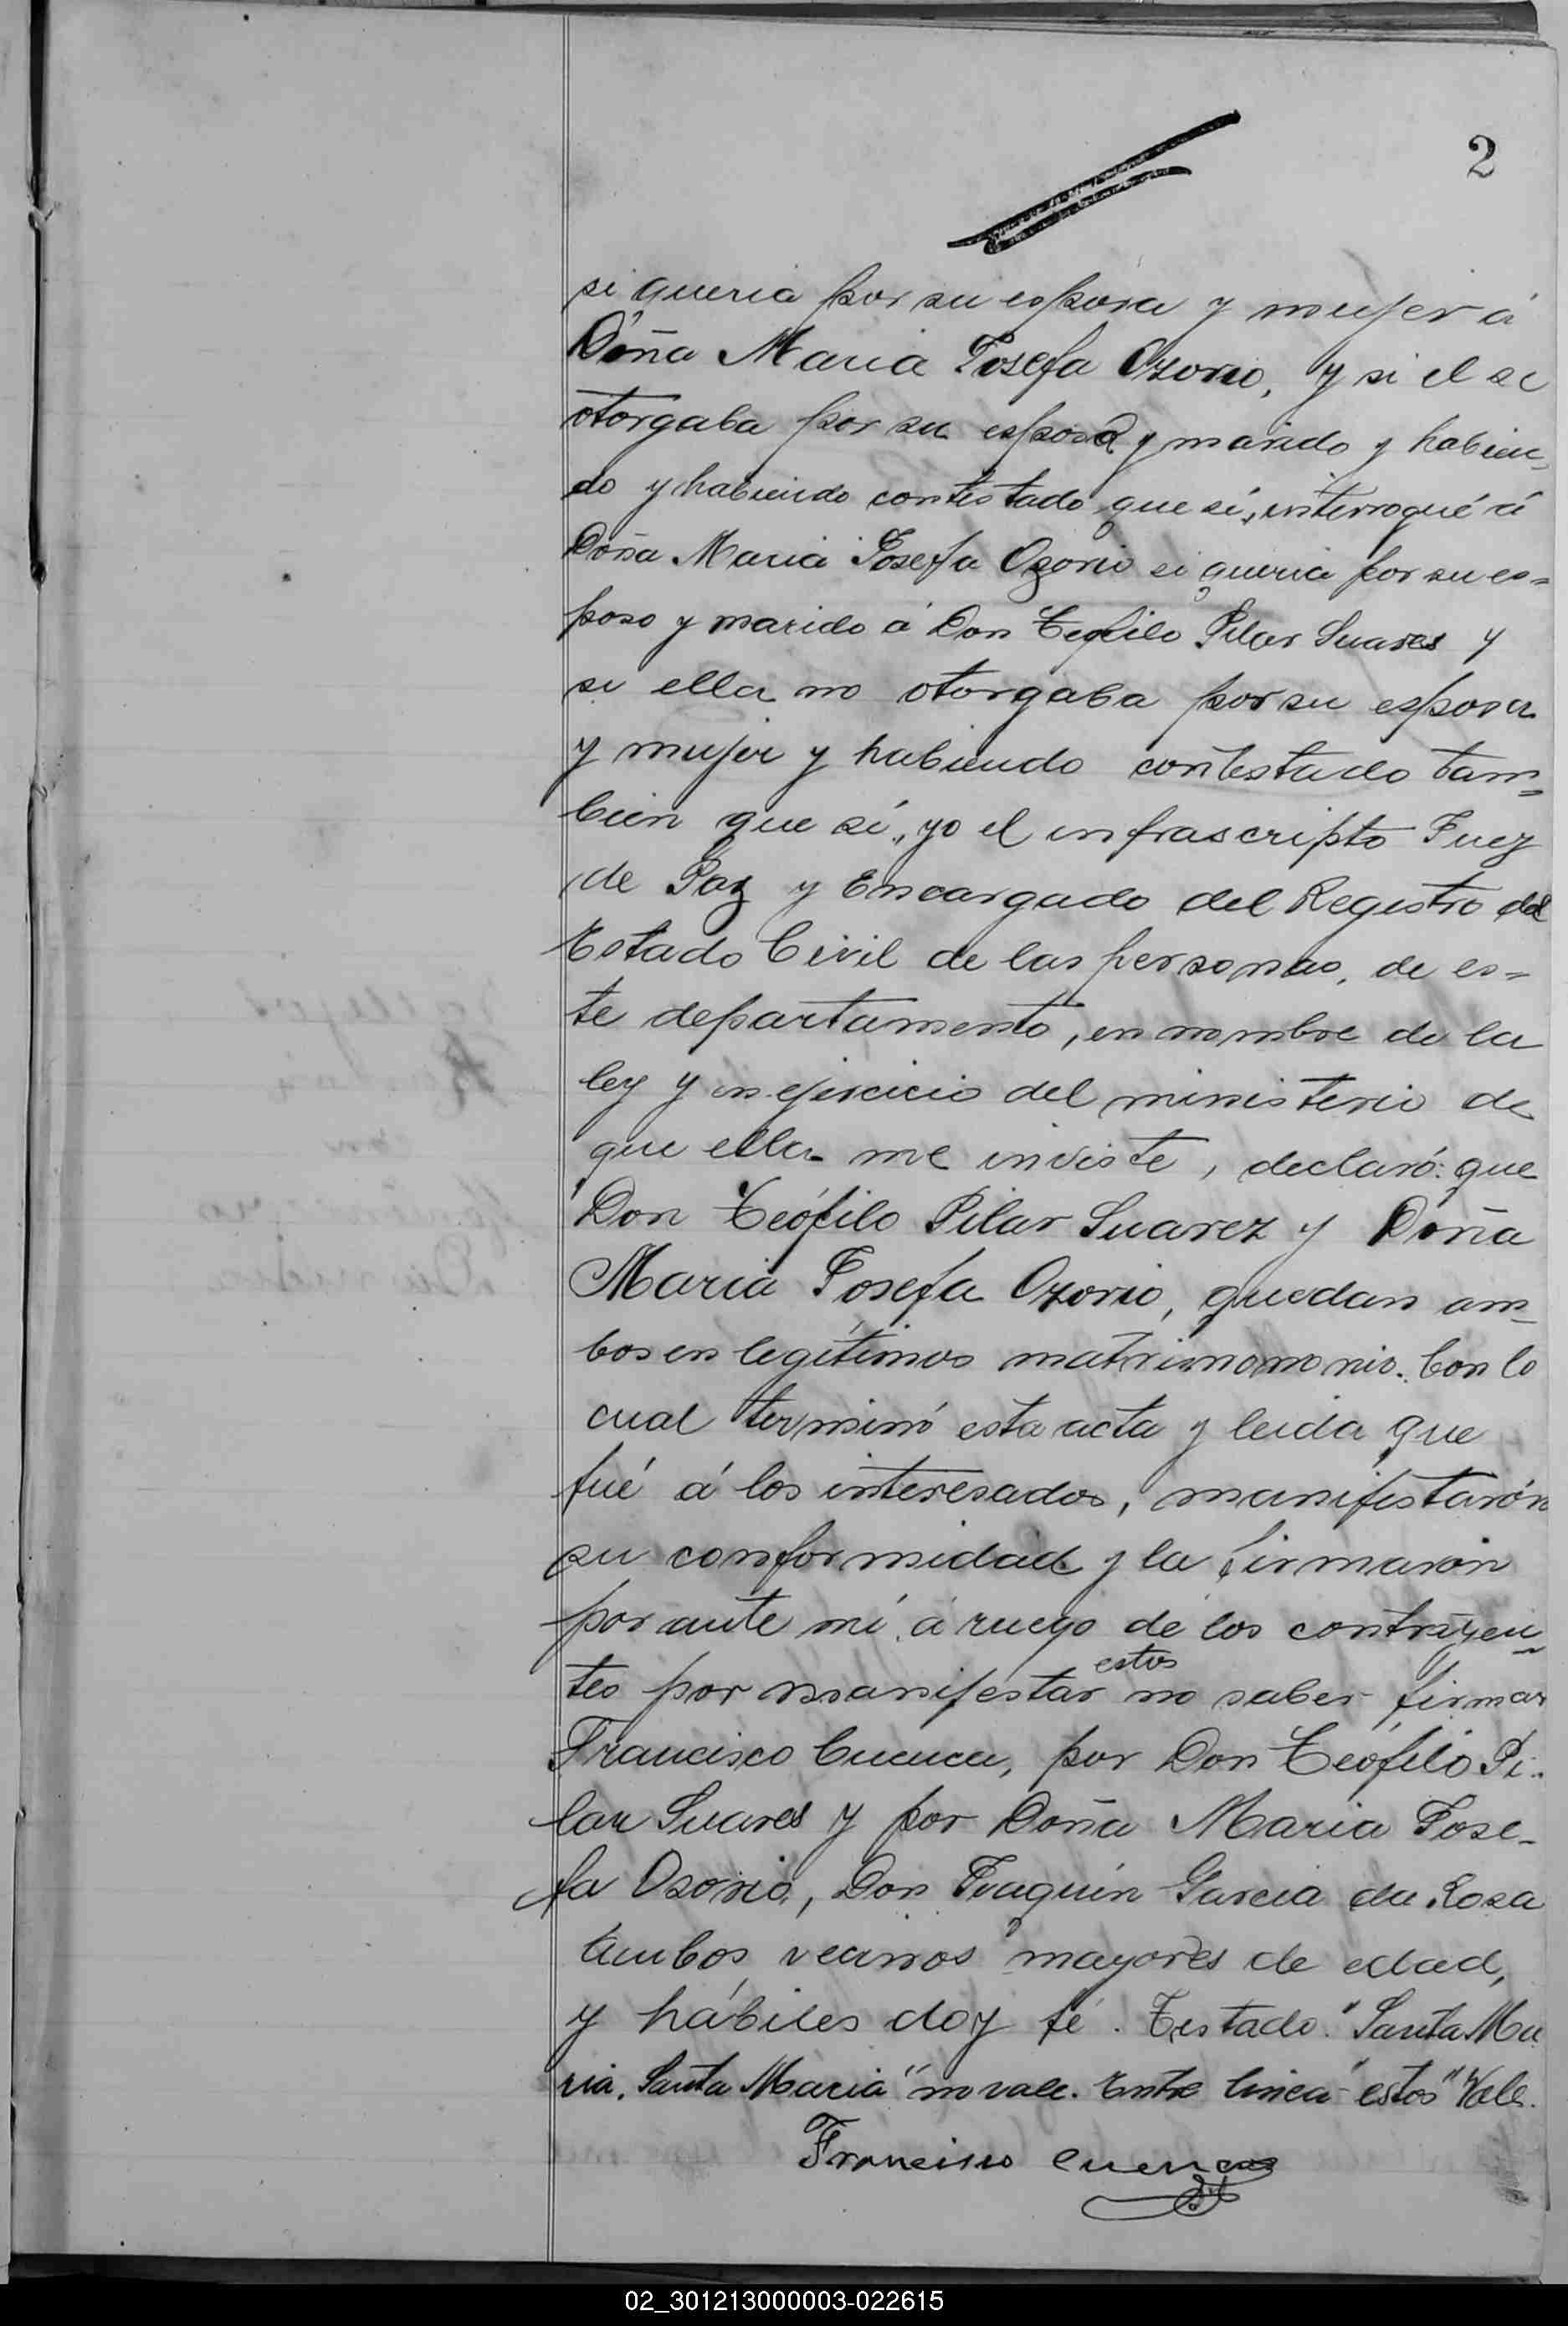 2
si queria por su esposa y mujer á
Doña Maria Josefa Ozorio, y si el se
otorgaba por su esposo y marido y habien=
do y habiendo contestado que sí, interrogué á
Doña Maria Josefa Ozorio si queria por su es=
poso y marido á Don Teofilo Pilar Suares y
si ella no otorgaba por su esposa
y mujer y habiendo contestado tam=
bien que sí, yo el infrascripto Juez
de Paz y Encargado del Registro del
Estado Civil de las personas, de es=
te departamento, en nombre de la
ley y en ejercicio del ministerio de
que ella me inviste, declaró: que
Don Teófilo Pilar Suarez y Doña
Maria Josefa Ozorio, quedan am=
bos en legítimos matrimomonio. Con lo
cual terminó esta acta y leida que
fué á los interesados, manifestarón
su conformidad y la firmarón
por ante mí á ruego de los contrayen=
estos
tes por manifestar no saber firmar
Francisco Cuenca, por Don Teófilo Pi-
lar Suares y por Doña Maria Jose-
fa Osorio, Don Joaquín Garcia da Rosa
ambos vecinos mayores de edad,
y hábiles doy fé. Testado "Santa Ma
ria, Santa Maria" no vale. Entre linea "estos" Vale.
Francisco Cuenca
02_301213000003-022615